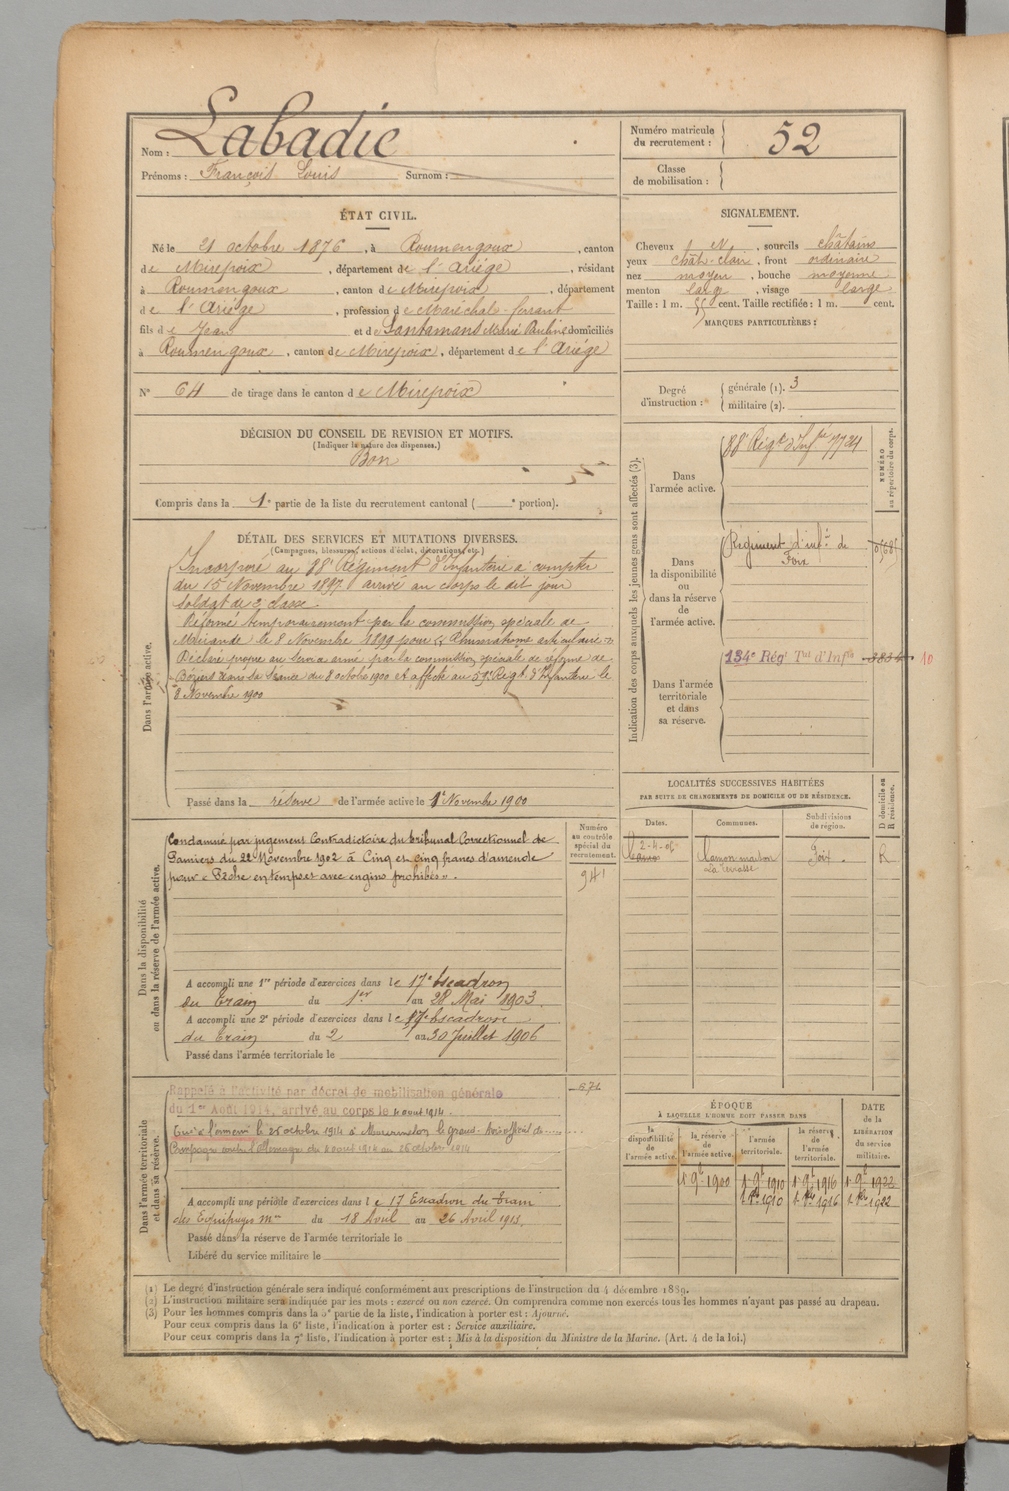 Nom : Labadie
Prénoms : François Louis Surnom :
Numéro matricule du recrutement : 52
Classe de mobilisation :
ÉTAT CIVIL.
Né le 21 octobre 1876, à Roumengoux, canton
de Mirepoix, département de l'Ariège, résidant
à Roumengoux, canton de Mirepoix, département
de l'Ariège, profession de Maréchal-ferrant
fils de Jean et de Santamans Marie Pauline domiciliés
à Roumengoux, canton de Mirepoix, département de l'Ariège
N° 64 de tirage dans le canton de Mirepoix
DÉCISION DU CONSEIL DE REVISION ET MOTIFS.
(Indiquer la nature des dispenses.)
Bon
Compris dans la 1e partie de la liste du recrutement cantonal ( e portion).
DÉTAIL DES SERVICES ET MUTATIONS DIVERSES.
(Campagnes, blessures, actions d'éclat, décorations, etc.)
Dans l'armée active.
Incorporé au 88e Régiment d'Infanterie à compter
du 15 Novembre 1897 arrivé au Corps le dit jour
soldat de 2e classe.
Réformé temporairement par la commission spéciale de
Mirande le 8 Novembre 1899 pour « Rhumatisme articulaire »
Déclaré propre au service armé par la commission spéciale de réforme de
Béziers dans sa séance du 8 octobre 1900 et affecté au 59e Régt d'Infanterie le
8 Novembre 1900
Passé dans la réserve de l'armée active le 1er Novembre 1900
Dans la disponibilité
ou dans la réserve de l'armée active.
Condamné par jugement Contradictoire du tribunal Correctionnel de
Pamiers du 22 Novembre 1902 à Cinq et cinq francs d'amende
pour « Pêche en temps et avec engins prohibés ».
Numéro au contrôle spécial du recrutement.
941
A accompli une 1re période d'exercices dans le 17e Escadron
du Train du 1er au 28 Mai 1903
A accompli une 2e période d'exercices dans le 17e Escadron
du train du 2 au 30 Juillet 1906
Passé dans l'armée territoriale le
Dans l'armée territoriale
et dans sa réserve.
Rappelé à l'activité par décret de mobilisation générale
du 1er Août 1914, arrivé au corps le 4 août 1914.
Tué à l'ennemi le 26 octobre 1914 à Mourmelon le grand. Avis officiel du
Campagne contre l'Allemagne du 4 août 1914 au 26 octobre 1914
671
A accompli une période d'exercices dans le 17 Escadron du train
des Equipages mre du 18 Avril au 26 Avril 1913.
Passé dans la réserve de l'armée territoriale le
Libéré du service militaire le
SIGNALEMENT.
Cheveux N, sourcils châtains
yeux chât. clair, front ordinaire
nez moyen, bouche moyenne
menton large, visage large
Taille : 1 m. 55 cent. Taille rectifiée : 1 m. cent.
MARQUES PARTICULIÈRES :
Degré d'instruction : générale (1). 3
militaire (2).
Indication des corps auxquels les jeunes gens sont affectés (3).
NUMÉRO au répertoire du corps.
Dans l'armée active.
88e Régt d'Infie 7724
Dans la disponibilité ou dans la réserve de l'armée active.
Régiment d'infie de
Foix
Dans l'armée territoriale et dans sa réserve.
134e Régt Tal d'Infie 10
LOCALITÉS SUCCESSIVES HABITÉES
PAR SUITE DE CHANGEMENTS DE DOMICILE OU DE RÉSIDENCE.
Dates. Communes. Subdivisions de région. D domicile ou R résidence.
2-4-05 La Terrasse Foix. R
ÉPOQUE
À LAQUELLE L'HOMME DOIT PASSER DANS
DATE de la LIBÉRATION du service militaire.
la disponibilité de l'armée active. la réserve de l'armée active. l'armée territoriale. la réserve de l'armée territoriale.
1er 9bre 1900 1er 9bre 1910 1er 9bre 1916 1er 9bre 1922
1910 1916 1922
(1) Le degré d'instruction générale sera indiqué conformément aux prescriptions de l'instruction du 4 décembre 1889.
(2) L'instruction militaire sera indiquée par les mots : exercé ou non exercé. On comprendra comme non exercés tous les hommes n'ayant pas passé au drapeau.
(3) Pour les hommes compris dans la 5e partie de la liste, l'indication à porter est : Ajourné.
Pour ceux compris dans la 6e liste, l'indication à porter est : Service auxiliaire.
Pour ceux compris dans la 7e liste, l'indication à porter est : Mis à la disposition du Ministre de la Marine. (Art. 4 de la loi.)